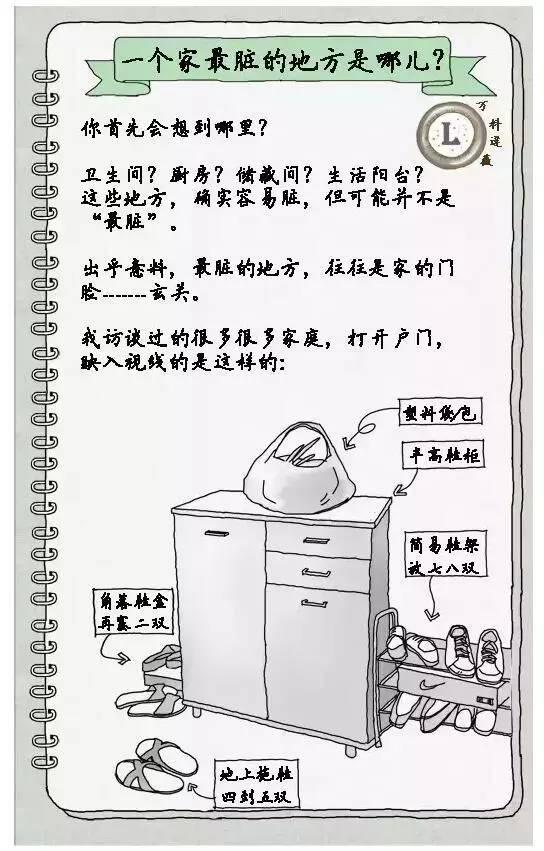 一个家最脏的地方是哪儿？
L
你首先会想到哪里？
卫生间？厨房？储藏间？生活阳台？
这些地方，确实容易脏，但可能并不是
“最脏”。
出乎意料，最脏的地方，往往是家的门
脸-------玄关。
我访谈过的很多很多家庭，打开户门，
映入视线的是这样的：
塑料袋/包
半高鞋柜
简易鞋架
放七八双
角落鞋盒
再塞二双
地上拖鞋
四到五双